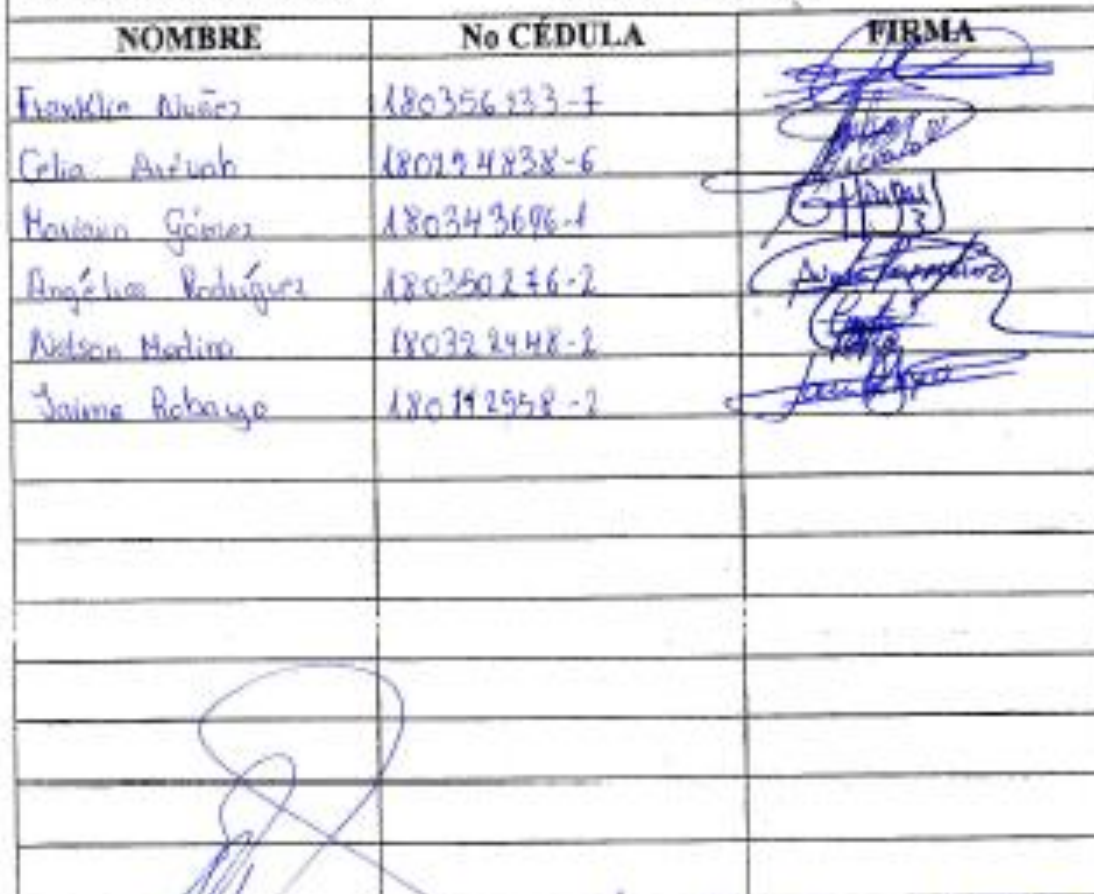 NOMBRE No CÉDULA FIRMA
Franklin Nuñez 180356233-7
Celia 180294838-6
Mariana Gómez 180343696-1
Angélica Rodríguez 180350276-2
Nelson Medina 180322448-2
Jaime Robayo 180192958-2